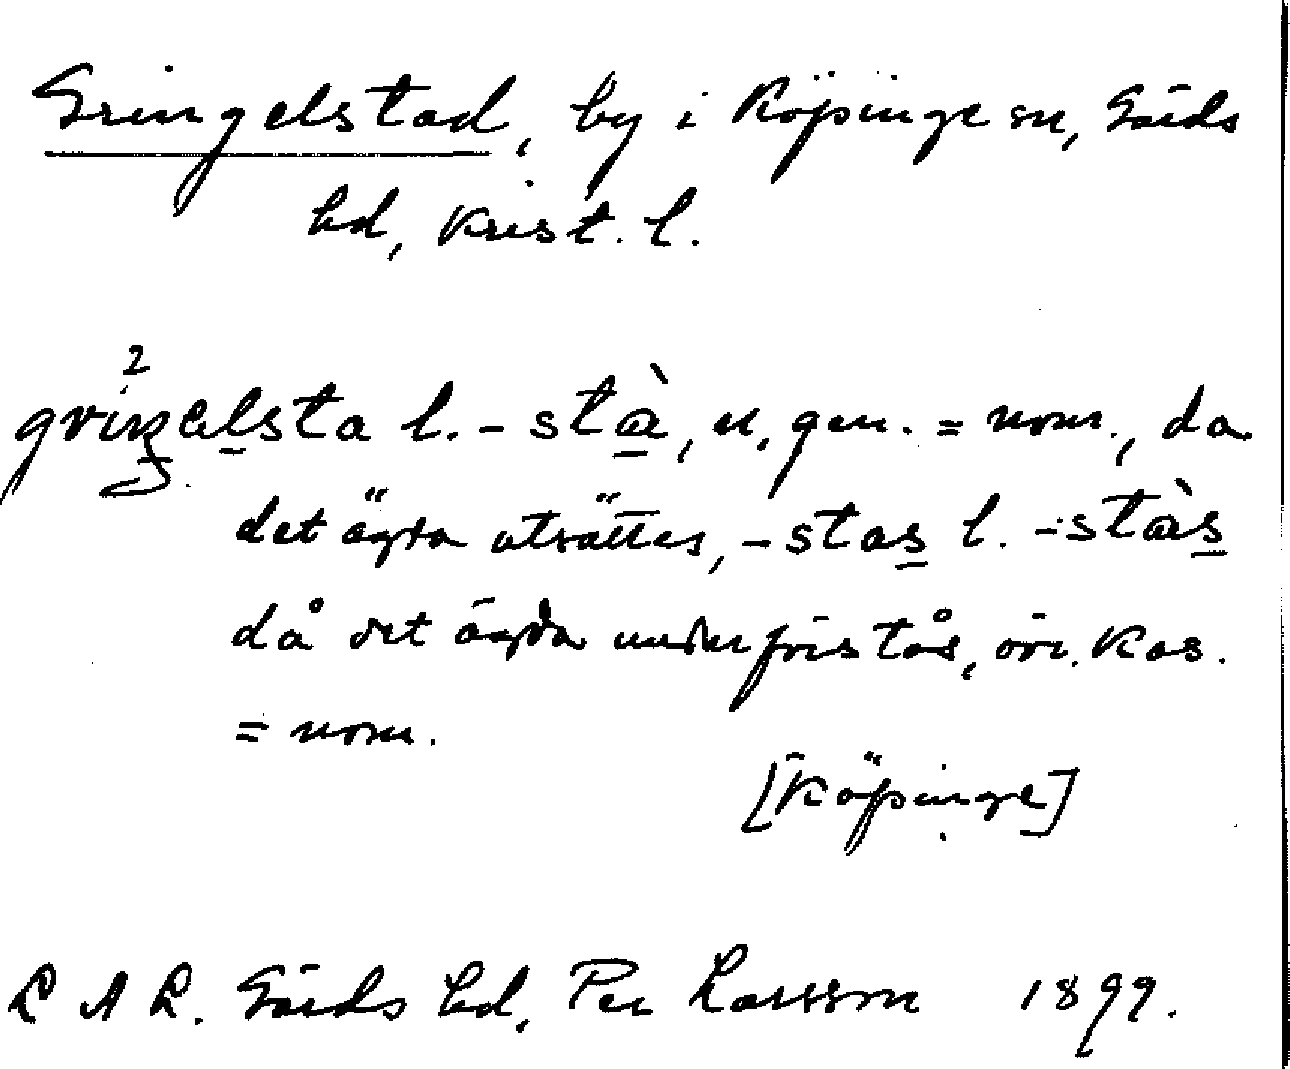 Gringelstad, by i Köpinge sn, Gärds
hd, Krist. l.
2
griŋəlsta l. -stà, n. gen. = nom., då
det ägda utsättes, -stas l. -stàs
då det ägda underförstås, övr. kas.
= nom.
[Köpinge]
L A L. Gärds hd, Per Larsson 1899.